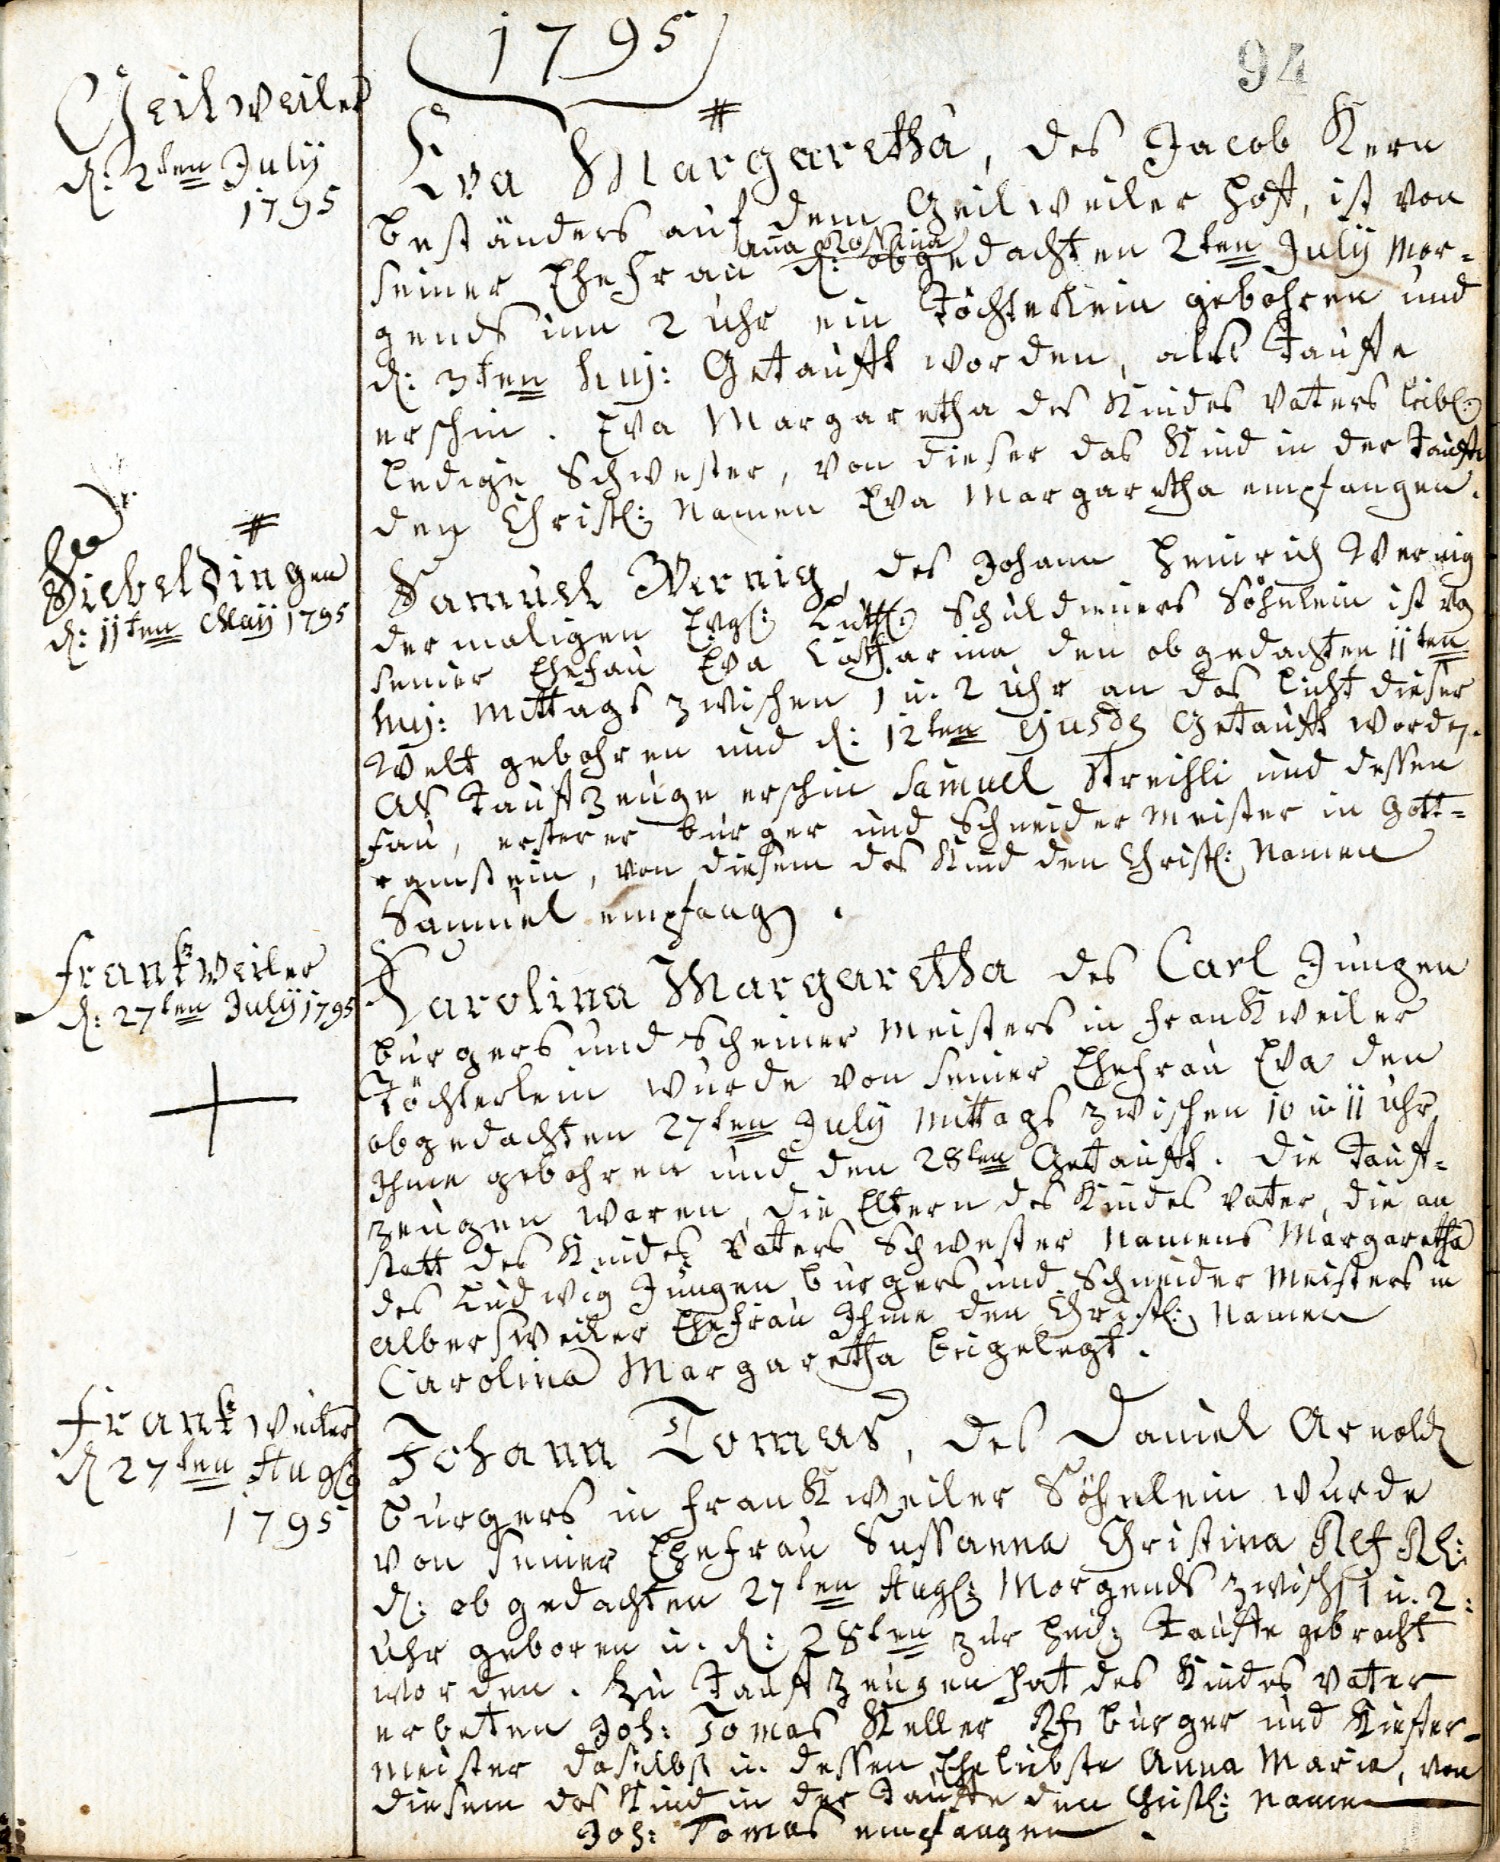 1795
94
Geilweiler
d: 2ten July
1795
Eva Margaretha, des Jacob Kern
beständers auf dem Geilweiler Hoff, ist von
Anna Rossina
seiner Ehefrau d: obgedachten 2ten July mor-
gends um 2 Uhr ein Töchterlein gebohren und
d: 3ten huj: Getaufft worden, als Tauffe
erschin. Eva Margaretha des Kindes Vaters leibl:
ledige Schwester, von dieser das Kind in der Tauffe
den Christl: Namen Eva Margaretha empfangen.
Siebeldingen
d: 11ten May 1795
Samuel Wernig, des Johann Heinrich Wernig
dermaligen Evgl: Luth: Schuldieners Söhnlein ist von
seiner Ehefau Eva Catharina den obgedachten 11ten
huj: Mittags zwischen 1 u. 2 Uhr an das Licht dieser
Welt gebohren und d: 12ten Getaufft worden.
Als Tauffzeuge erschin Samuel Streihli und dessen
fau, ersterer burger und Schneider Meister in Gott-
ramstein, von diesem das Kind den Christl: Namen
Samuel empfangen.
Frankweiler
d: 27ten July 1795
Karolina Margaretha des Carl Jungen
burgers und Scheiner Meisters in Frankweiler
Töchterlein wurde von seiner Ehefrau Eva den
obgedachten 27ten July Mittags zwischen 10 u 11 Uhr
Ihme gebohren und den 28ten Getaufft. Die Tauff-
zeugen waren, die Eltern des Kindes Vater, die an
statt des Kindes Vaters Schwester Namens Margaretha
des Ludwig Jungen burgers und Schneider Meisters in
Albersweiler Ehefrau Ihme den Christl: Namen
Carolina Margaretha beigelegt.
Frankweiler
d 27ten Aug:
1795
Johann Tomas, des Daniel Arnold
burgers in Frankweiler Söhnlein wurde
von seiner Ehefrau Sussanna Christina
d: obgedachten 27ten Aug: Morgends zwisch 1 u. 2:
Uhr geboren u. d: 28ten zur Heil: Tauffe gebracht
worden. Zu Tauffzeugen hat des Kindes Vater
erbeten Joh: Tomas Keller Rf: burger und Kiefer-
meister daselbst u. dessen Eheliebste Anna Maria, von
diesem das Kind in der Tauffe den Christl: Namen
Joh: Tomas empfangen.